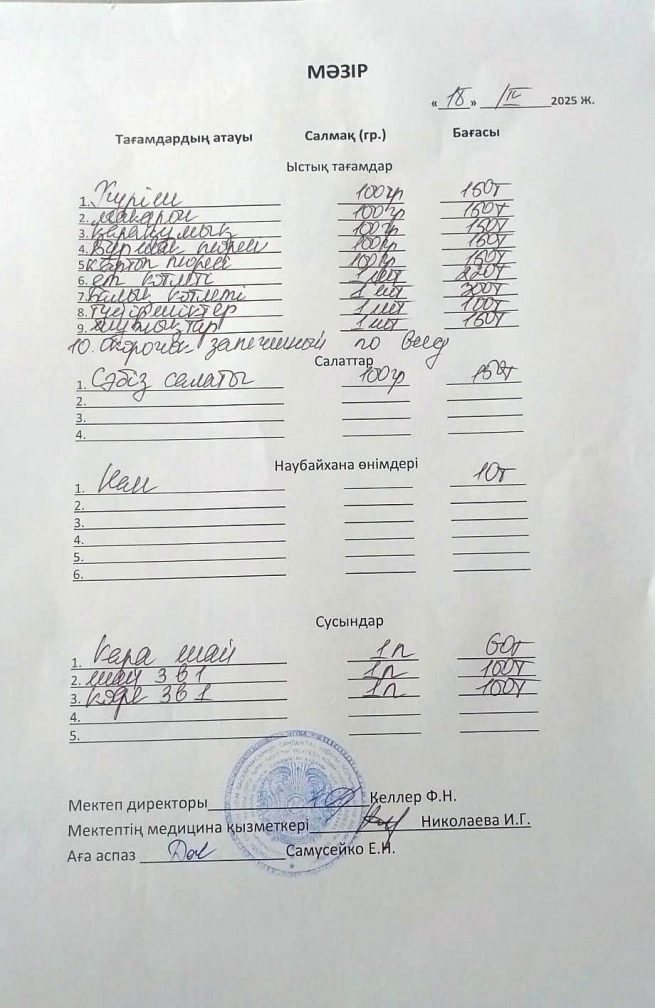 МӘЗІР
«18» /IV 2025 ж.
Тағамдардың атауы Салмақ (гр.) Бағасы
Ыстық тағамдар
1. Күріш 100гр 150т
2. макарон 100гр 150т
3. қарақұмық 100гр 150т
4. Бұршақ пюреси 100гр 150т
5. картоп пюреси 100гр 150т
6. ет котлеті 1 шт 220т
7. балық котлеті 1 шт 300т
8. 1 шт 100т
9. 1 шт 150т
10. Окорочек запеченный по весу
Салаттар
1. Сәбіз салаты 100гр 150т
2.
3.
4.
Наубайхана өнімдері
1. Нан 10т
2.
3.
4.
5.
6.
Сусындар
1. Қара шай 1п 60т
2. шай 3 в 1 1п 100т
3. кофе 3 в 1 1п 100т
4.
5.
Мектеп директоры Келлер Ф.Н.
Мектептің медицина қызметкері Николаева И.Г.
Аға аспаз Самусейко Е.Н.